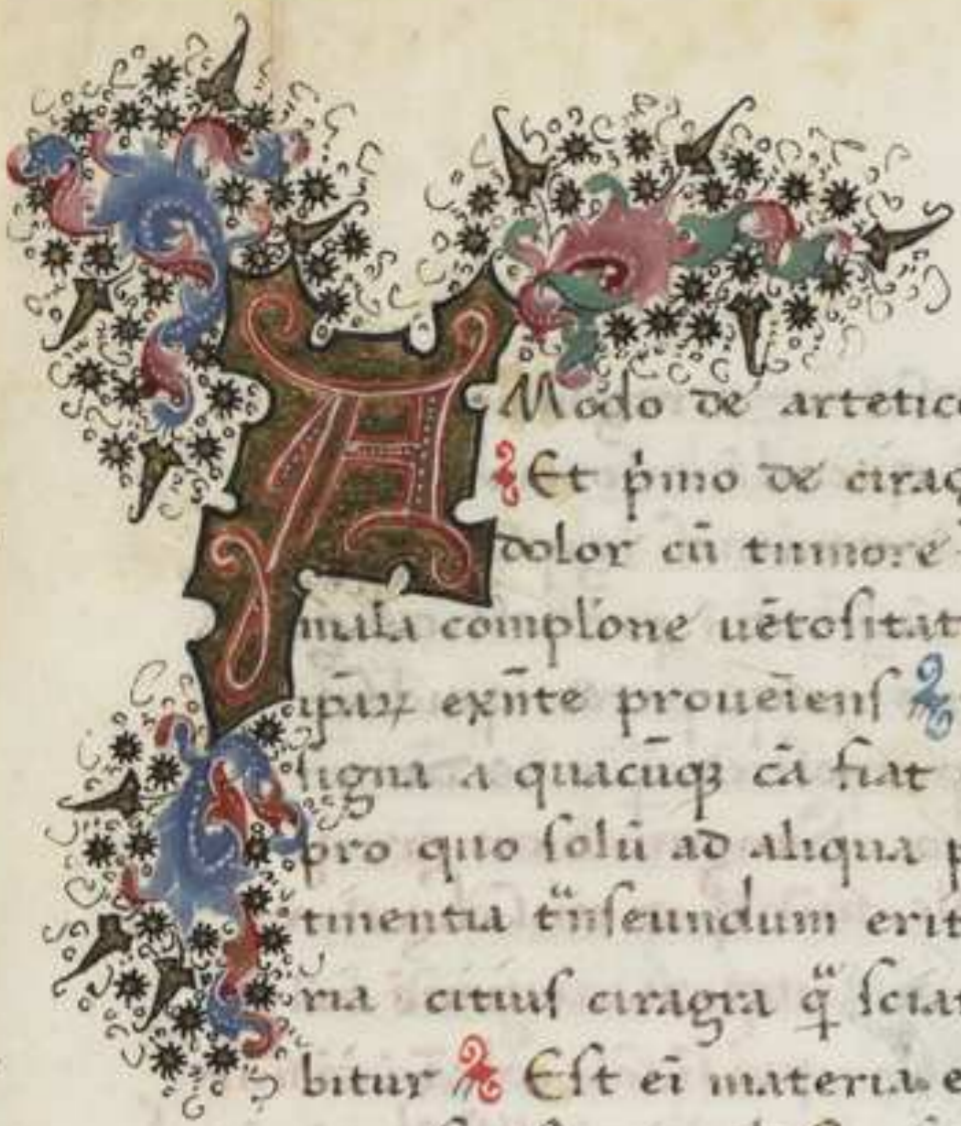 A
Modo de artetic
Et p̍mo de cirag
dolor cū tumore
mala complōne uētoſitat
exñte proueīenſ
ſigna a quacūqꝫ cā fiat
pro quo ſolū ad aliqua p
tinentia tͣnſeundum erit
ria citiuſ ciragra qͣ̄ ſciat
bitur Eſt eī materia e